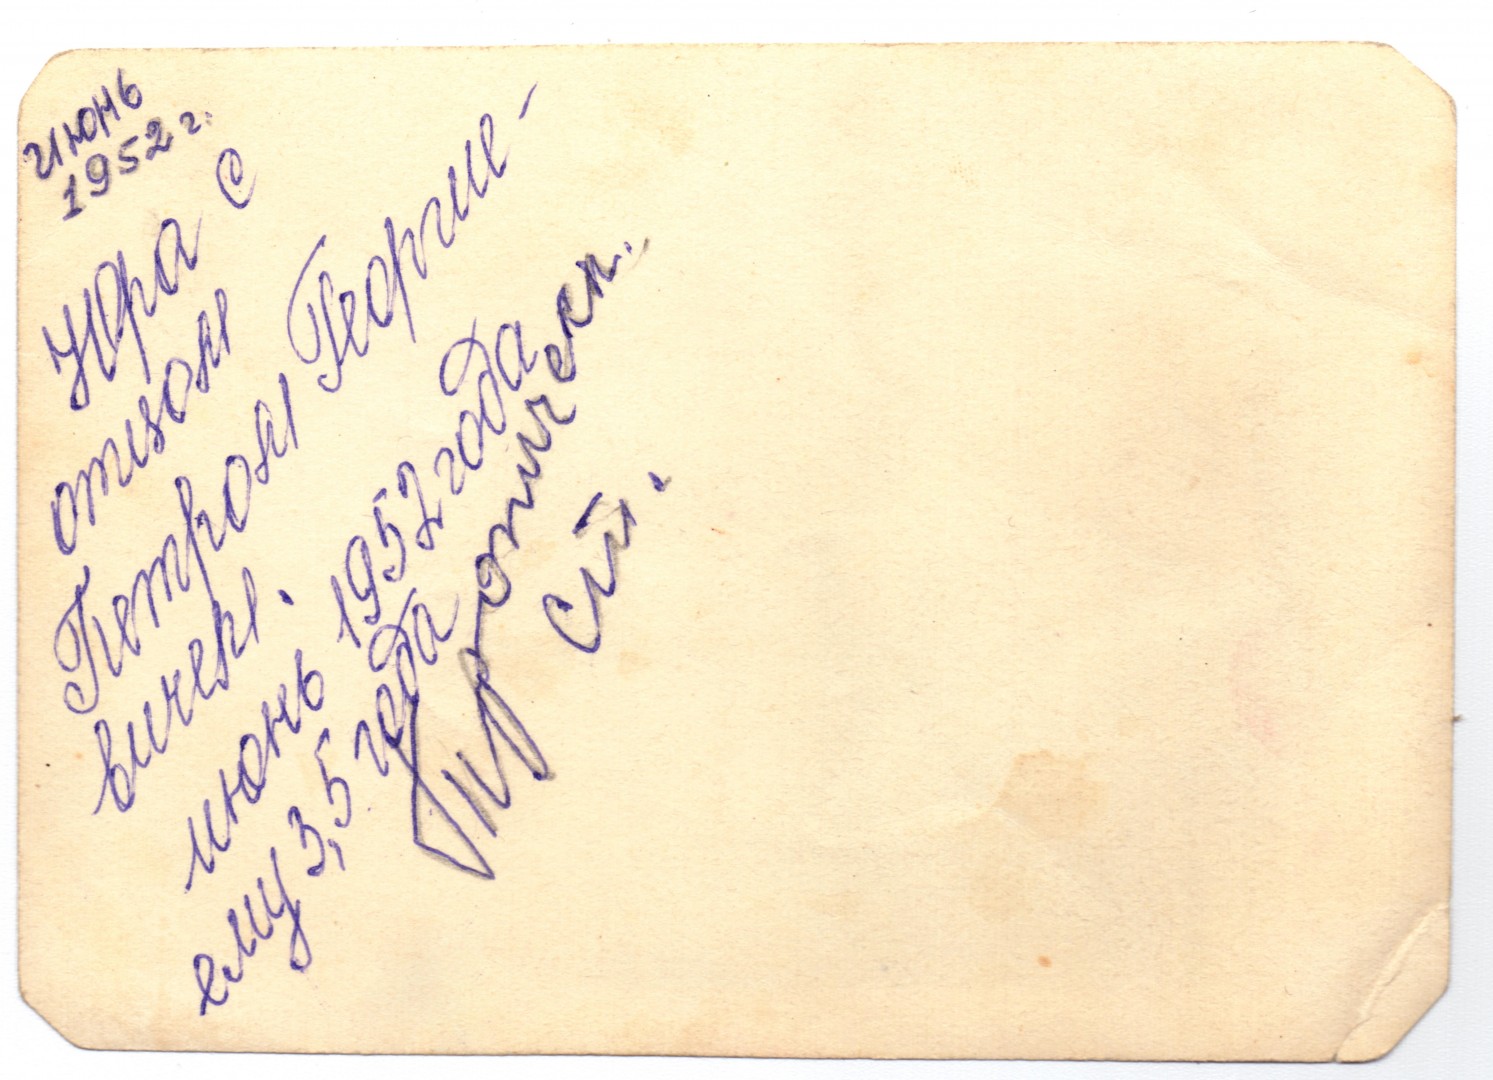 июнь
1952 г.
Юра с
отцом
Петром Георгие-
вичем.
июнь 1952 года
ему 3,5 года
Тропическ.
ст.